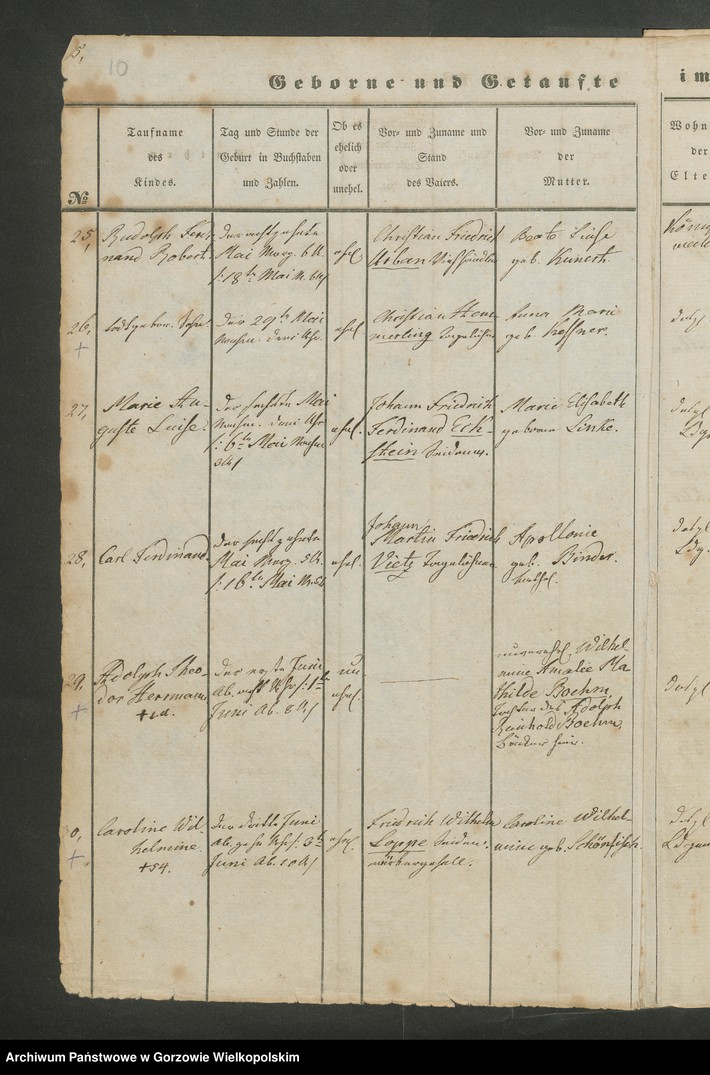 5,
10
Geborne und Getaufte
im
№
Taufname
des
Kindes.
Tag und Stunde der
Geburt in Buchstaben
und Zahlen.
Ob es
ehelich
oder
unehel.
Vor- und Zuname und
Stand
des Vaters.
Vor- und Zuname
der
Mutter.
Wohn
der
Elte
25,
Rudolph Ferdi
nand Robert.
Der achtzehnte
Mai Morg. 6 U.
/: 18te Mai M. 6 U/
ehel.
Christian Friedrich
Urban
Beate Luise
geb. Kunert.
26,
+
todtgebor. Sohn.
Der 29te Mai
Nachm. drei Uhr.
ehel.
Christian Hem
merling Tagelöhner
Anna Marie
geb. Heffner.
27,
Marie Au-
guste Luise.
Der sechste Mai
Nachm. drei Uhr
/: 6te Mai Nachm
3 U/
ehel.
Johann Friedrich
Ferdinand Eck-
stein
Marie Elisabeth
geborne Linke.
28,
Carl Ferdinand.
Der sechzehnte
Mai Morg. 5 U.
/: 16te Mai M. 5 U
ehel.
Johann
Martin Friedrich
Vietz Tagelöhner
Apollonie
geb. Binder.
29,
+
Adolph Theo-
dor Herrmann
Der erste Juni
Ab. acht Uhr /: 1te
Juni Ab. 8 U/
un-
ehel.
unverehel. Wilhel-
mine Amalie Ma
thilde Boehm,
Tochter des Adolph
Reinhold Boehm,
0,
+
Caroline Wil-
helmine.
+54.
Der dritte Juni
Ab. zehn Uhr /: 3te
Juni Ab. 10 U/
ehel.
Friedrich Wilhelm
Loppe Seiden-
Caroline Wilhel-
mine geb. Schönfisch.
Archiwum Państwowe w Gorzowie Wielkopolskim